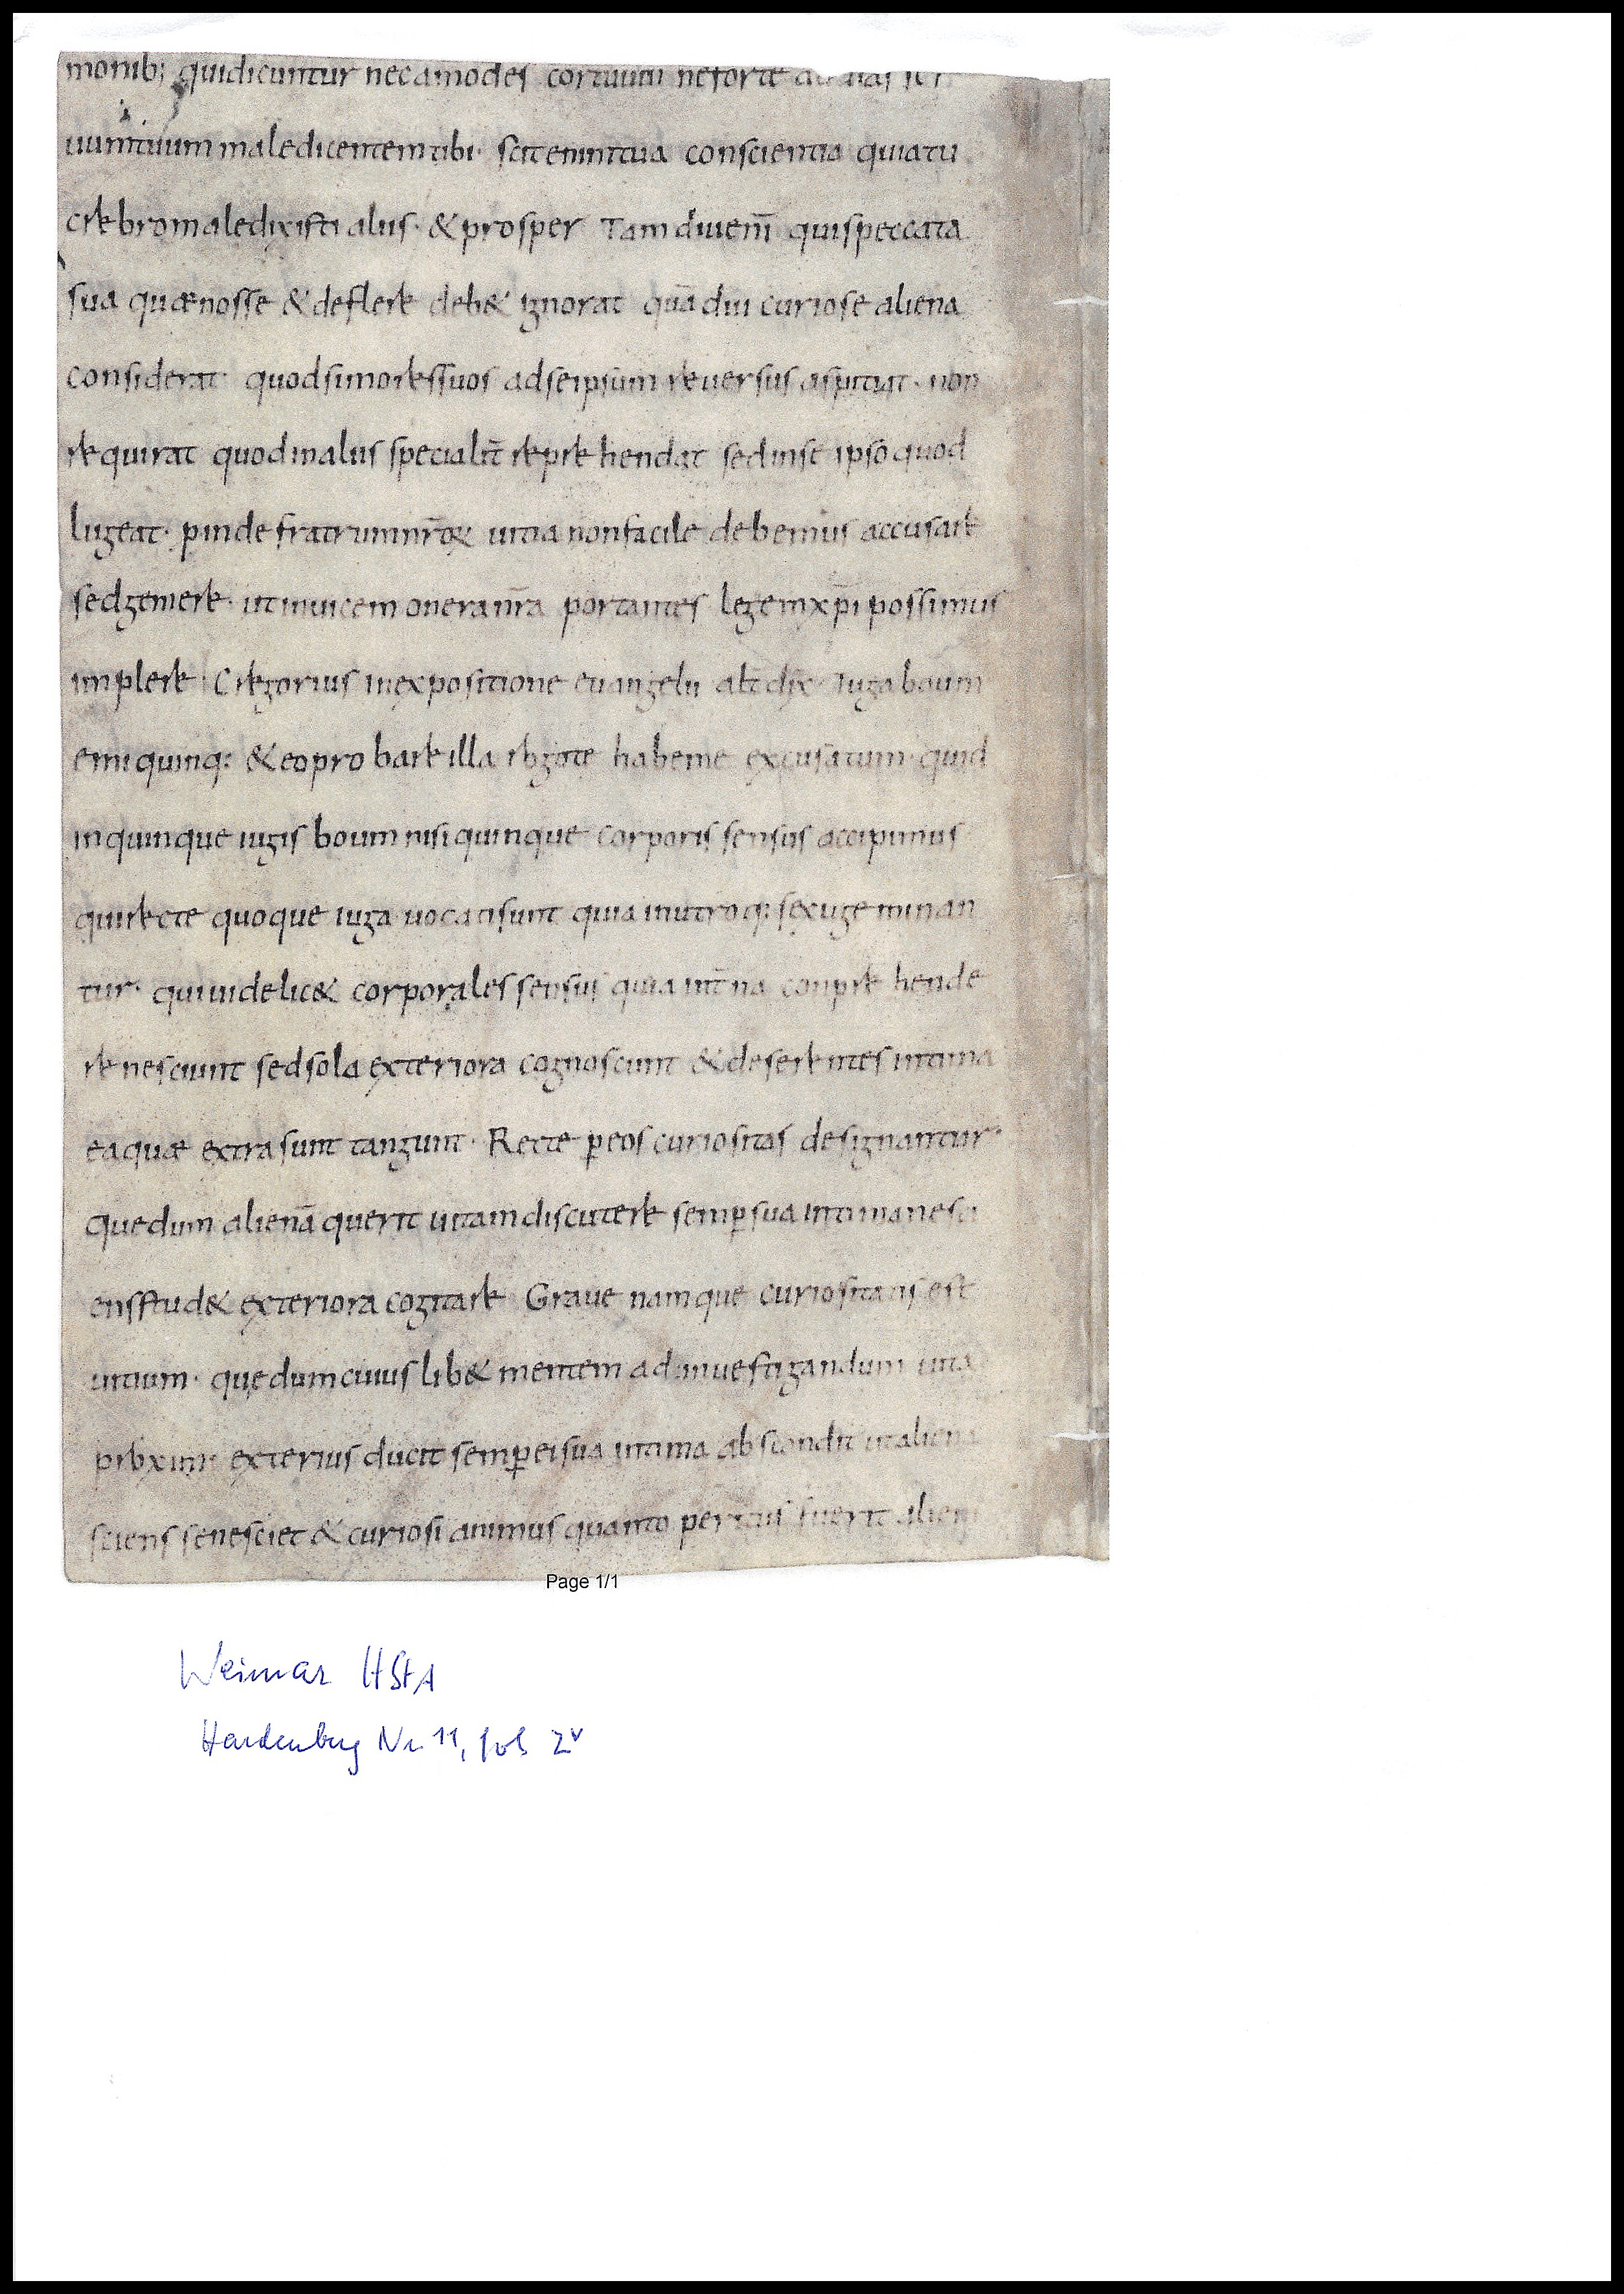 monib; quidicuntur necamodes cortuum neforte audias ser
uumtuum maledicentem tibi· scit enim tua conscientia quia tu
crebro maledixisti aliis· & prosper Tamdiu eni̅ quis peccata
sua quæ nosse & deflere deb& ignorat qua̅diu curiose aliena
considerat· quod si mores suos ad se ipsum reuersus aspitiat· non
requirat quod in aliis specialit̅ reprehendat sed in se ipso quod
lugeat· ꝓinde fratrum nr̅o& uitia non facile debemus accusare
sed gemere· ut inuicem onera nr̅a portantes legem xp̅i possimus
implere Gregorius in expositione euangelii alt̅ dix̅ Iuga boum
emi quinq: & eo probare illa rogo te habe me excusatum· quid
in quinque iugis boum nisi quinque corporis sensus accipimus
qui recte quoque iuga uocati sunt quia in utroq: sexu geminan
tur· qui uidelic& corporales sensus quia int̅na conprehende
re nesciunt sed sola exteriora cognoscunt & deserentes intima
ea quæ extra sunt tangunt· Recte ꝑ eos curiositas designantur·
que dum aliena̅ querit uitam discutere semꝑ sua intima nesci
ens stud& exteriora cogitare Graue namque curiositatis est
uitium· quę dum cuius lib& mentem ad inuestigandum uita
proximi· exterius ducit semꝑ ei sua intima abscondit ut aliena
sciens se nesciet & curiosi animus quanto peritus fuerit alieni
Page 1/1
Weimar HStA
Hardenberg Nr. 11, fol 2v